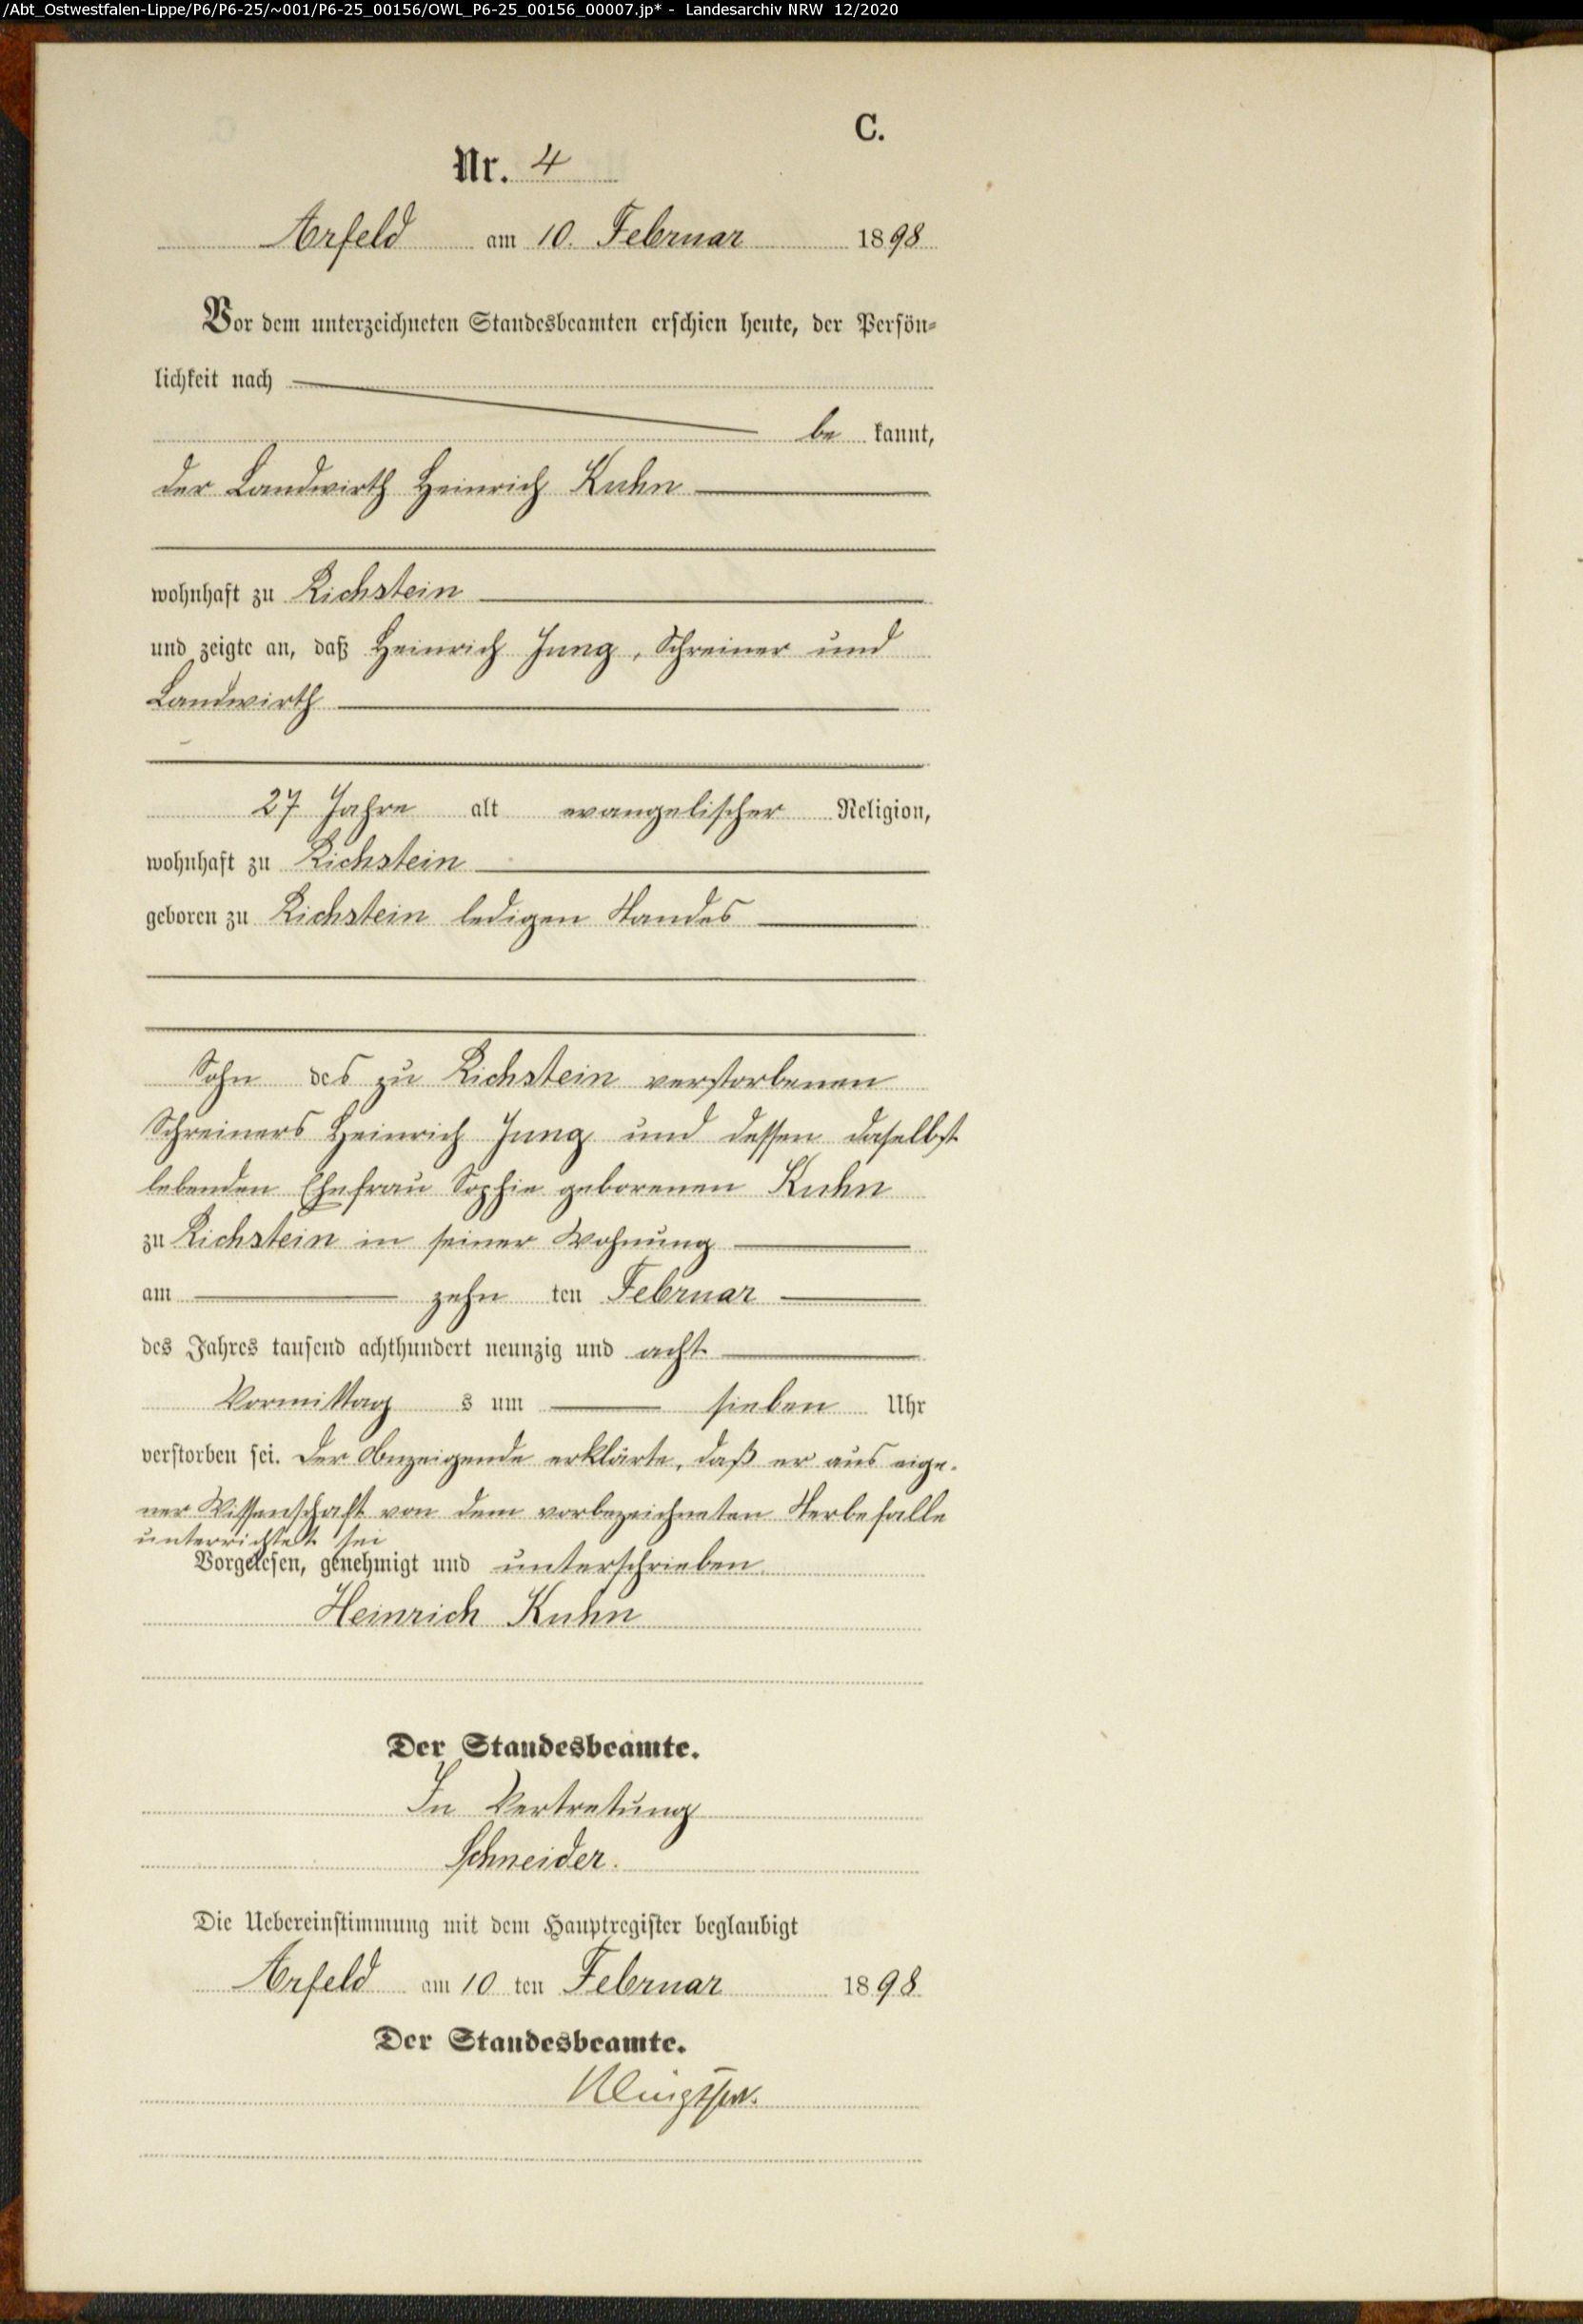 /Abt_Ostwestfalen-Lippe/P6/P6-25/~001/P6-25_00156/OWL_P6-25_00156_00007.jp* - Landesarchiv NRW 12/2020
C.
Nr. 4
Arfeld am 10. Februar 1898
Vor dem unterzeichneten Standesbeamten erschien heute, der Persön-
lichkeit nach
be kannt,
der Landwirth Heinrich Kuhn
wohnhaft zu Richstein
und zeigte an, daß Heinrich Jung, Schreiner und
Landwirth
27 Jahre alt evangelischer Religion,
wohnhaft zu Richstein
geboren zu Richstein ledigen Standes
Sohn des zu Richstein verstorbenen
Schreiners Heinrich Jung und dessen daselbst
lebenden Ehefrau Sophie geborenen Kuhn
zu Richstein in seiner Wohnung
am zehn ten Februar
des Jahres tausend achthundert neunzig und acht
Vormittag s um sieben Uhr
verstorben sei. Der Anzeigende erklärte, daß er aus eige-
ner Wissenschaft von dem vorbezeichneten Sterbefalle
unterrichtet sei
Vorgelesen, genehmigt und unterschrieben
Heinrich Kuhn
Der Standesbeamte.
In Vertretung
Schneider.
Die Uebereinstimmung mit dem Hauptregister beglaubigt
Arfeld am 10 ten Februar 1898
Der Standesbeamte.